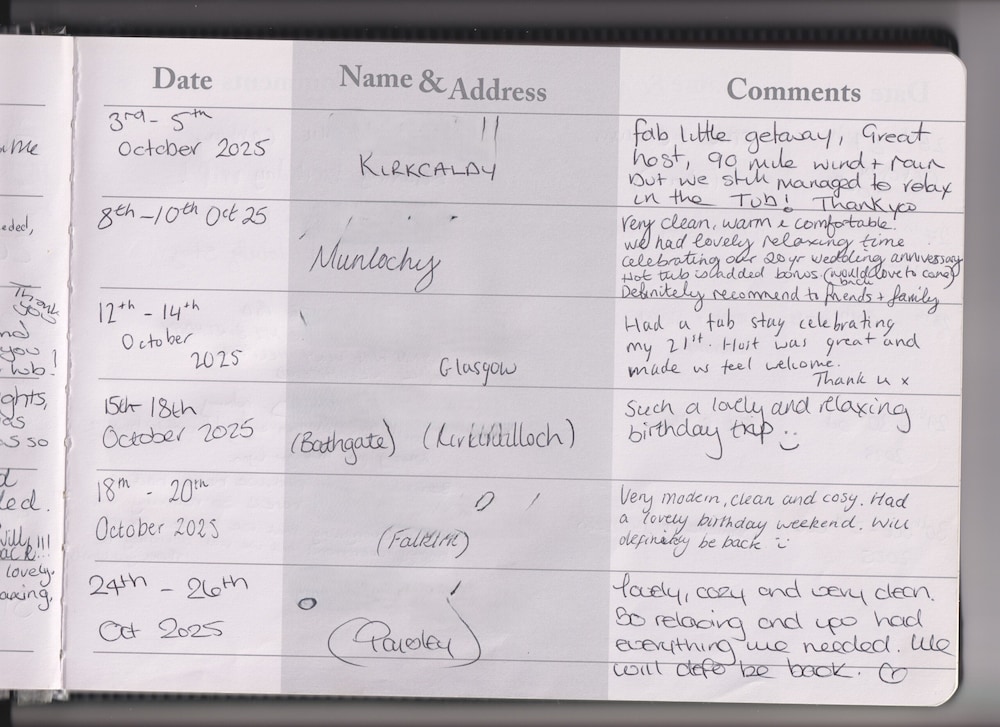 Date Name & Address Comments
3rd - 5th
October 2025
KIRKCALDY
fab little getaway, Great
host, 90 mile wind + rain
but we still managed to relax
in the Tub! Thankyoo
8th - 10th Oct 25
Munlochy
Very clean, warm & comfortable.
we had lovely relaxing time
celebrating our 20yr wedding anniversary
Hot tub is added bonus (would love to come)
back
Definitely recommend to friends + family
12th - 14th
October
2025
Glasgow
Had a fab stay celebrating
my 21st. Host was great and
made us feel welcome.
Thank u x
15th - 18th
October 2025
(Bathgate) (Kirkintilloch)
Such a lovely and relaxing
birthday trip
18th - 20th
October 2025
(Falkirk)
Very modern, clean and cosy. Had
a lovely birthday weekend. Will
definitely be back
24th - 26th
Oct 2025
(Paisley)
lovely, cozy and very clean.
So relaxing and had
everything we needed. We
will defo be back.